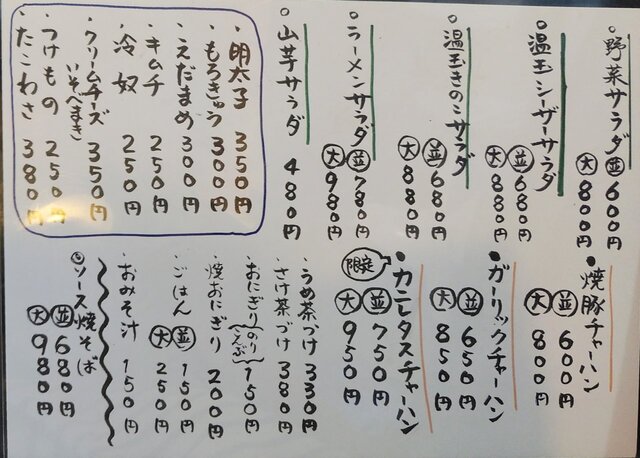 ○野菜サラダ 並 600円
大 800円
○温玉シーザーサラダ
並 680円
大 880円
○温玉きのこサラダ
並 680円
大 880円
○ラーメンサラダ
並 780円
大 980円
○山芋サラダ 480円
明太子 350円
もろきゅう 300円
えだまめ 300円
キムチ 250円
冷奴 250円
クリームチーズいそべまき 350円
つけもの 250円
たこわさ 380円
●焼豚チャーハン
並 600円
大 800円
・ガーリックチャーハン
並 650円
大 850円
限定
・カニレタスチャーハン
並 750円
大 950円
・うめ茶づけ 330円
・さけ茶づけ 380円
・おにぎり(のり こんぶ) 150円
・焼おにぎり 200円
・ごはん 並 150円
大 250円
・おみそ汁 150円
◎ソース焼そば
並 680円
大 980円